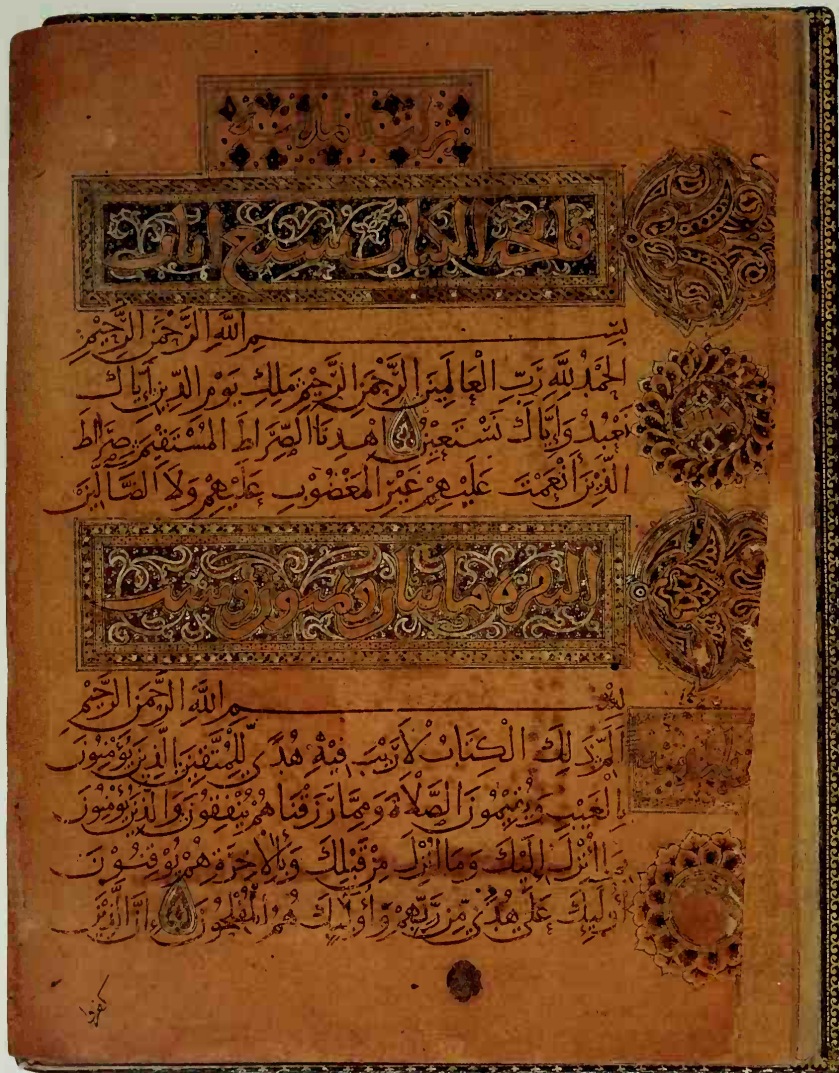 نزلت بالمدينة
فاتحة الكتاب سبع آيات
بسم الله الرحمن الرحيم
الحمد لله رب العالمين الرحمن الرحيم ملك يوم الدين اياك
نعبد واياك نستعين اهدنا الصراط المستقيم صراط
الذين انعمت عليهم غير المغضوب عليهم ولا الضالين
البقرة مايتان وثمنون وست
بسم الله الرحمن الرحيم
الم ذلك الكتاب لا ريب فيه هدى للمتقين الذين يؤمنون
بالغيب ويقيمون الصلاة ومما رزقناهم ينفقون والذين يؤمنون
بما انزل اليك وما انزل من قبلك وبالاخرة هم يوقنون
اوليك على هدى من ربهم واوليك هم المفلحون ان الذين
كفروا